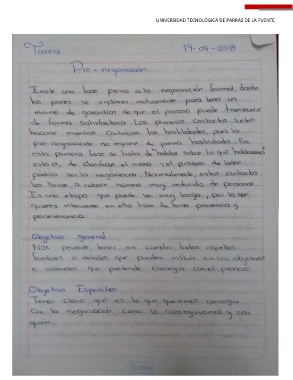 UNIVERSIDAD TECNOLÓGICA DE PARRAS DE LA FUENTE
Tarea 19-09-2018
Pre-negociación
Existe una fase previa a la negociación formal, donde
las partes se exploran mutuamente para tener un
mínimo de garantías de que el proceso puede transcurrir
de forma satisfactoria. Los primeros contactos suelen
hacerse mientras continúan las hostilidades, pues la
pre-negociación no requiere de previas hostilidades. En
esta primera fase se trata de "hablar sobre lo que hablaremos"
esto es, de clarificar el modo y el proceso de lo que
podría ser la negociación. Normalmente, estos contactos
los llevan a cabo número muy reducido de personas.
Es una etapa que puede ser muy larga, por lo que
quienes intervienen en ella han de tener paciencia y
perseverancia.
Objetivo general
Nos permite tener en cuenta todos aquellos
factores o detalles que pueden influir en sus objetivos
e intereses que pretende conseguir con el proceso
Objetivo Específico
Tener claro qué es lo que queremos conseguir
con la negociación, cómo lo conseguiremos y con
quién...